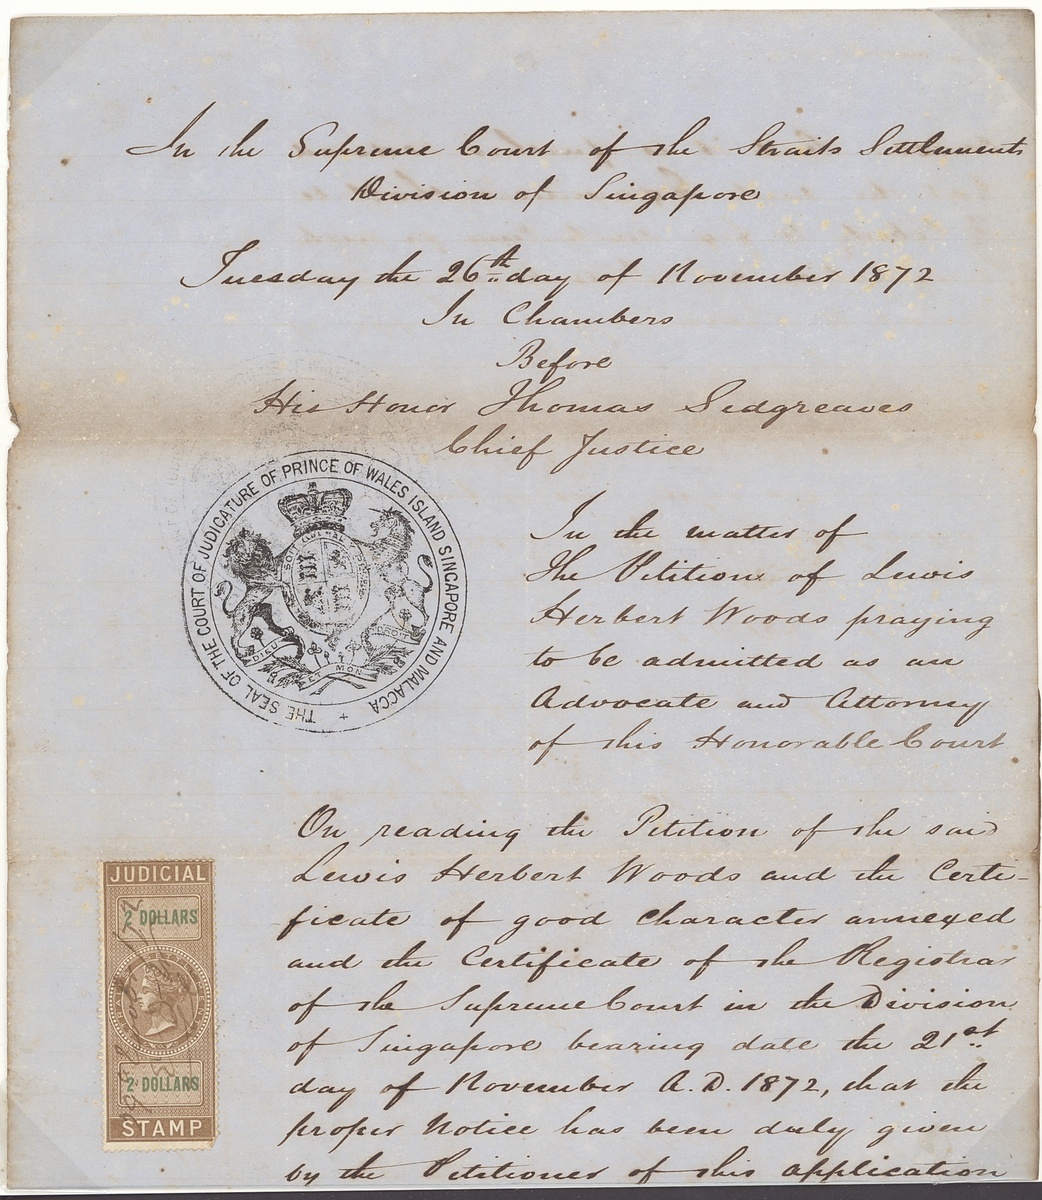 In the Supreme Court of the Straits Settlements
Division of Singapore
Tuesday the 26th day of November 1872
In Chambers
Before
His Honor Thomas Sidgreaves
Chief Justice
THE SEAL OF THE COURT OF JUDICATURE OF PRINCE OF WALES ISLAND SINGAPORE AND MALACCA
DIEU ET MON DROIT
In the matter of
The Petition of Lewis
Herbert Woods praying
to be admitted as an
Advocate and Attorney
of this Honorable Court
On reading the Petition of the said
Lewis Herbert Woods and the Certi-
ficate of good character annexed
and the Certificate of the Registrar
of the Supreme Court in the Division
of Singapore bearing date the 21st
day of November A.D. 1872, that the
proper Notice has been duly given
by the Petitioner of this application
JUDICIAL
2 DOLLARS
2 DOLLARS
STAMP